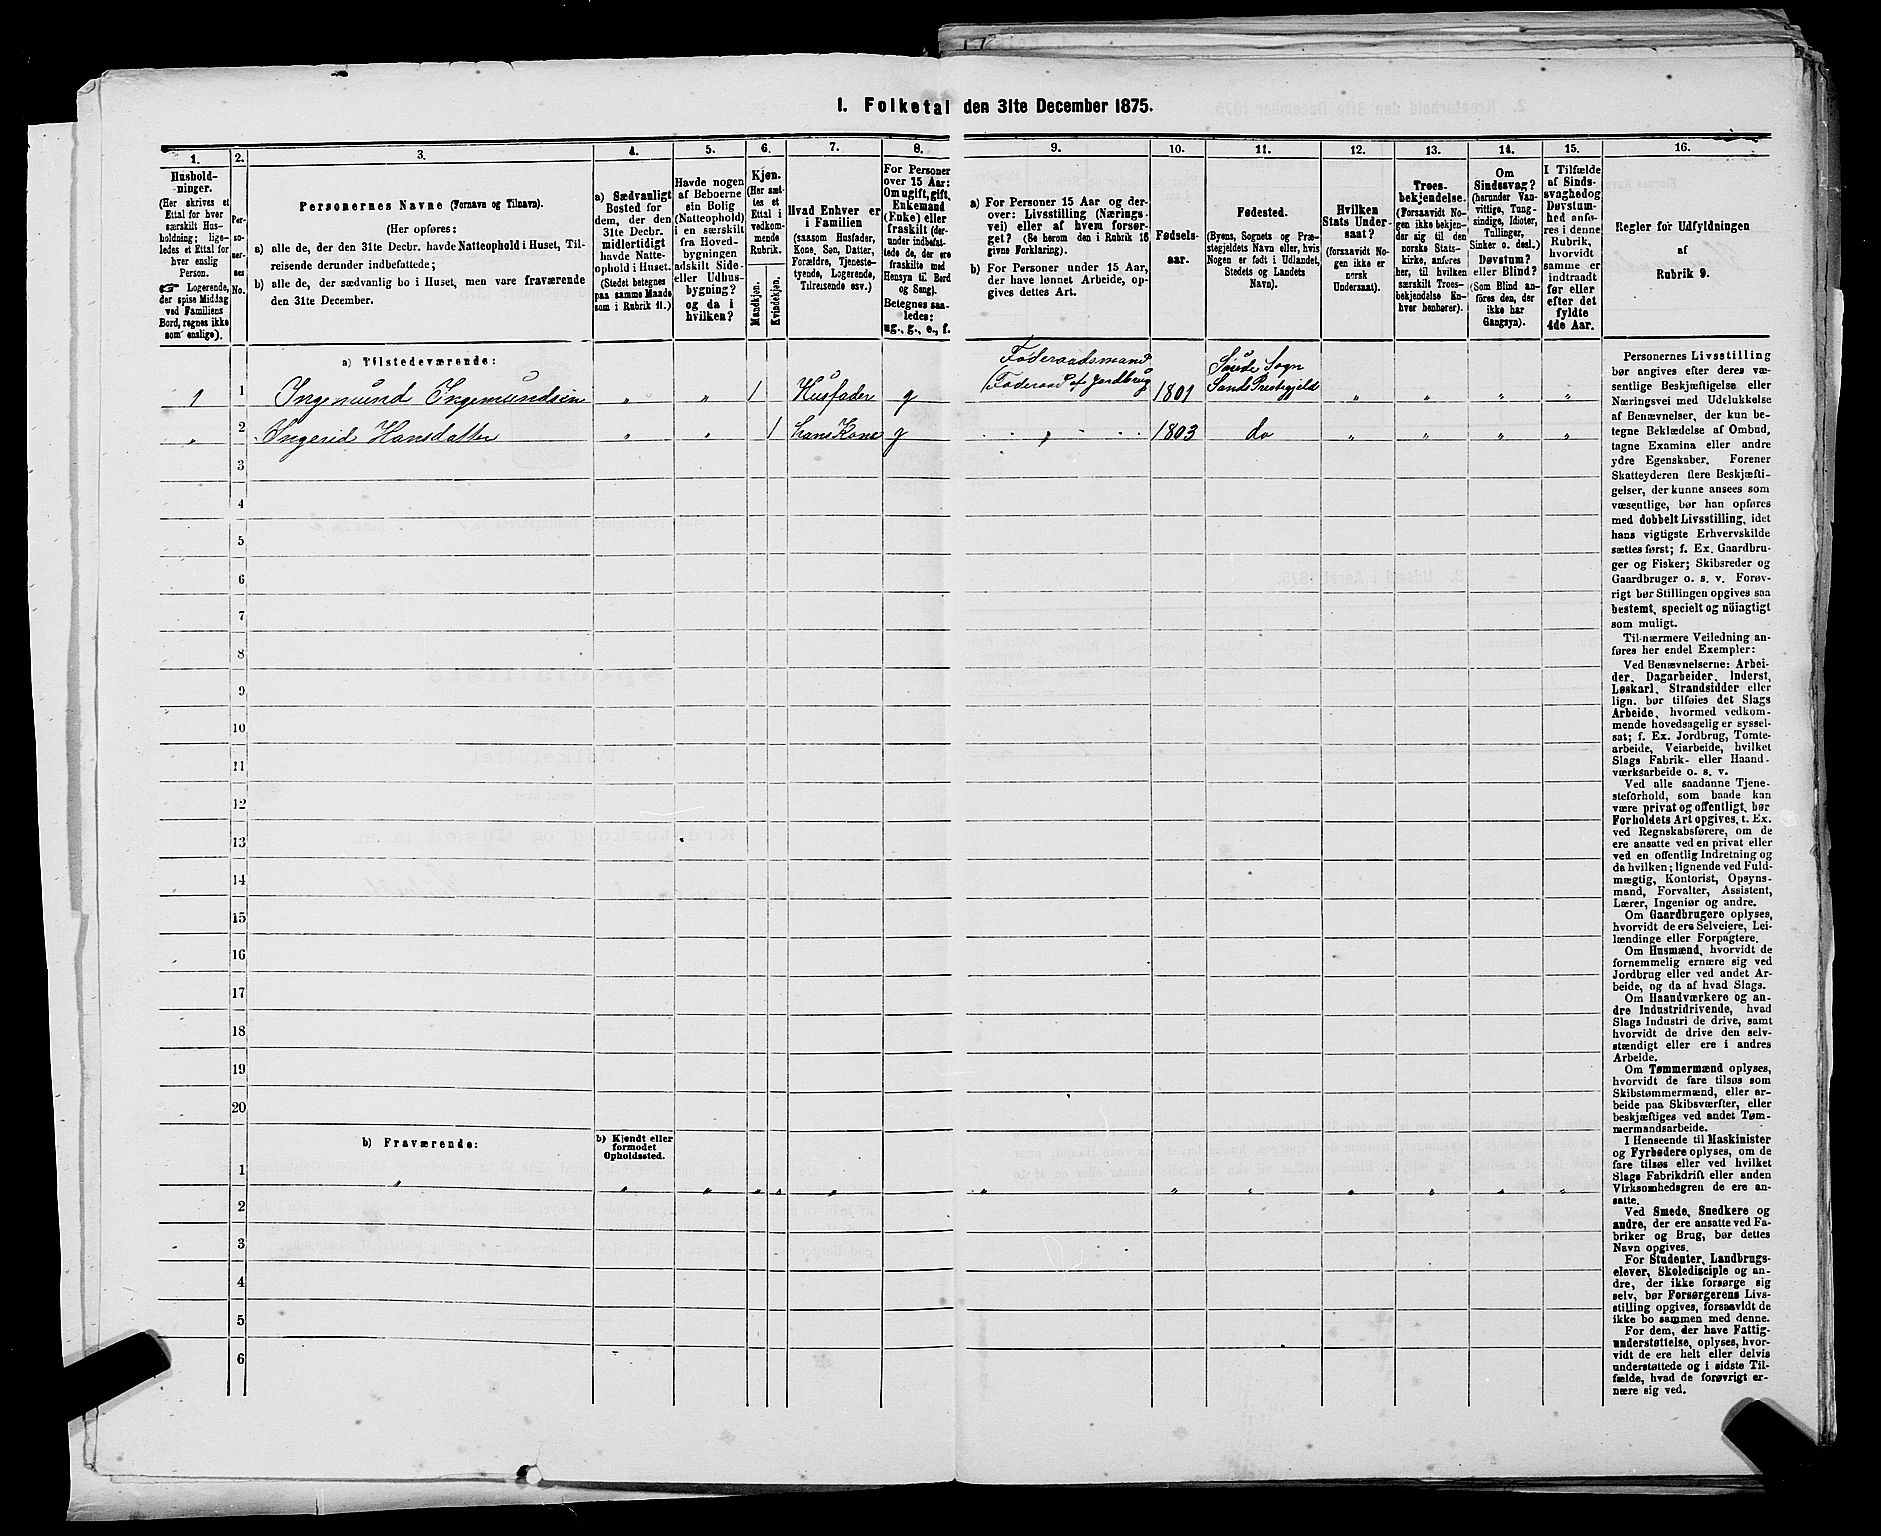 I. Folketal den 31te December 1875.
1.
Hushold-
ninger.
(Her skrives et
Ettal for hver
særskilt Hus-
holdning; lige-
ledes et Ettal for
hver enslig
Person.
☛ Logerende,
der spise Middag
ved Familiens
Bord, regnes ikke
som enslige).
2.
Per-
so-
ner-
nes
No.
3.
Personernes Navne (Fornavn og Tilnavn).
(Her opføres:
a) alle de, der den 31te Decbr. havde Natteophold i Huset, Til-
reisende derunder indbefattede;
b) alle de, der sædvanlig bo i Huset, men vare fraværende
den 31te December.
4.
a) Sædvanligt
Bosted for
dem, der den
31te Decbr.
midlertidigt
havde Natte-
ophold i Huset.
(Stedet betegnes
paa samme Maade
som i Rubrik 11.)
5.
Havde nogen
af Beboerne
sin Bolig
(Natteophold)
i en særskilt
fra Hoved-
bygningen
adskilt Side-
eller Udhus-
bygning?
og da i
hvilken?
6.
Kjøn.
(Her sæt-
tes et
Ettal i
vedkom-
mende
Rubrik.
Mandkjøn.
Kvindekjøn.
7.
Hvad Enhver er
i Familien
(saasom Husfader,
Kone, Søn, Datter,
Forældre, Tjeneste-
tyende, Logerende,
Tilreisende osv.)
8.
For Personer
over 15 Aar:
Om ugift, gift,
Enkemand
(Enke) eller
fraskilt (der-
under indbefat-
tede de, der ere
fraskilte med
Hensyn til Bord
og Seng).
Betegnes saa-
ledes:
ug., g., e., f.
9.
a) For Personer 15 Aar og der-
over: Livsstilling (Nærings-
vei) eller af hvem forsør-
get? (Se herom den i Rubrik 16
givne Forklaring).
b) For Personer under 15 Aar,
der have lønnet Arbeide, op-
gives dettes Art.
10.
Fødsels-
aar.
11.
Fødested.
(Byens, Sognets og Præ-
stegjeldets Navn eller, hvis
Nogen er født i Udlandet,
Stedets og Landets
Navn).
12.
Hvilken
Stats Under-
saat?
(forsaavidt No-
gen ikke er
norsk
Undersaat).
13.
Troes-
bekjendelse.
(Forsaavidt No-
gen ikke bekjen-
der sig til den
norske Stats-
kirke, anføres
her, til hvilken
særskilt Troes-
bekjendelse En-
hver henhører).
14.
Om
Sindssvag?
(herunder Van-
vittige, Tung-
sindige, Idioter,
Tullinger,
Sinker o. desl.)
Døvstum?
eller Blind?
(Som Blind an-
føres den, der
ikke har
Gangsyn).
15.
I Tilfælde
af Sinds-
svaghed og
Døvstum-
hed anfø-
res i denne
Rubrik,
hvorvidt
samme er
indtraadt
før eller
efter det
fyldte
4de Aar.
16.
Regler for Udfyldningen
af
Rubrik 9.
a) Tilstedeværende:
1 1 Ingemund Ingemundsen " " 1 Husfader g Føderaadsmand (Føderaad af Jordbrug 1801 Sande Sogn Sande Prestegjeld " " " "
" 2 Ingerid Hansdatter " " 1 hans Kone g " 1803 do " " " "
3
4
5
6
7
8
9
10
11
12
13
14
15
16
17
18
19
20
b) Fraværende:
b) Kjendt eller
formodet
Opholdssted.
1 " " " " " " " " " " " " "
2
3
4
5
6
Personernes Livsstilling
bør angives efter deres væ-
sentlige Beskjæftigelse eller
Næringsvei med Udelukkelse
af Benævnelser, der kun be-
tegne Beklædelse af Ombud,
tagne Examina eller andre
ydre Egenskaber. Forener
Skatteyderen flere Beskjæfti-
gelser, der kunne ansees som
væsentlige, bør han opføres
med dobbelt Livsstilling, idet
hans vigtigste Erhvervskilde
sættes først; f. Ex. Gaardbru-
ger og Fisker; Skibsreder og
Gaardbruger o. s. v. Forøv-
rigt bør Stillingen opgives saa
bestemt, specielt og nöiagtigt
som muligt.
Til nærmere Veiledning an-
føres her endel Exempler:
Ved Benævnelserne: Arbei-
der, Dagarbeider, Inderst,
Løskarl, Strandsidder eller
lign. bør tilføies det Slags
Arbeide, hvormed vedkom-
mende hovedsagelig er syssel-
sat; f. Ex. Jordbrug, Tomte-
arbeide, Veiarbeide, hvilket
Slags Fabrik- eller Haand-
værksarbeide o. s. v.
Ved alle saadanne Tjene-
steforhold, som baade kan
være privat og offentligt, bør
Forholdets Art opgives, t. Ex.
ved Regnskabsførere, om de
ere ansatte ved en privat eller
ved en offentlig Indretning og
da hvilken; lignende ved Fuld-
mægtig, Kontorist, Opsyns-
mand, Forvalter, Assistent,
Lærer, Ingeniør og andre.
Om Gaardbrugere oplyses,
hvorvidt de ere Selveiere, Lei-
lændinge eller Forpagtere.
Om Husmænd, hvorvidt de
fornemmelig ernære sig ved
Jordbrug eller ved andet Ar-
beide, og da af hvad Slags.
Om Haandværkere og an-
dre Industridrivende, hvad
Slags Industri de drive, samt
hvorvidt de drive den selv-
stændigt eller ere i andres
Arbeide.
Om Tømmermænd oplyses,
hvorvidt de fare tilsøs som
Skibstømmermænd, eller ar-
beide paa Skibsværfter, eller
beskjæftiges ved andet Tøm-
mermandsarbeide.
I Henseende til Maskinister
og Fyrbødere oplyses, om de
fare tilsøs eller ved hvilket
Slags Fabrikdrift eller anden
Virksomhedsgren de ere an-
satte.
Ved Smede, Snedkere og
andre, der ere ansatte ved Fa-
briker og Brug, bør dettes
Navn opgives.
For Studenter, Landbrugs-
elever, Skoledisciple og an-
dre, der ikke forsørge sig
selv, bør Forsørgerens Livs-
stilling opgives, forsaavidt de
ikke bo sammen med denne.
For dem, der have Fattig-
understøttelse, oplyses, hvor-
vidt de ere helt eller delvis
understøttede og i sidste Til-
fælde, hvad de forøvrigt er-
nære sig ved.